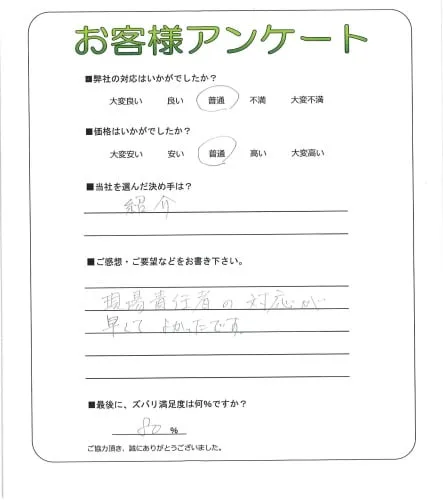 お客様アンケート
■弊社の対応はいかがでしたか?
大変良い 良い 普通 不満 大変不満
■価格はいかがでしたか?
大変安い 安い 普通 高い 大変高い
■当社を選んだ決め手は?
紹介
■ご感想・ご要望などをお書き下さい。
現場責任者の対応が
早くて よかったです。
■最後に、ズバリ満足度は何%ですか?
80 %
ご協力頂き、誠にありがとうございました。